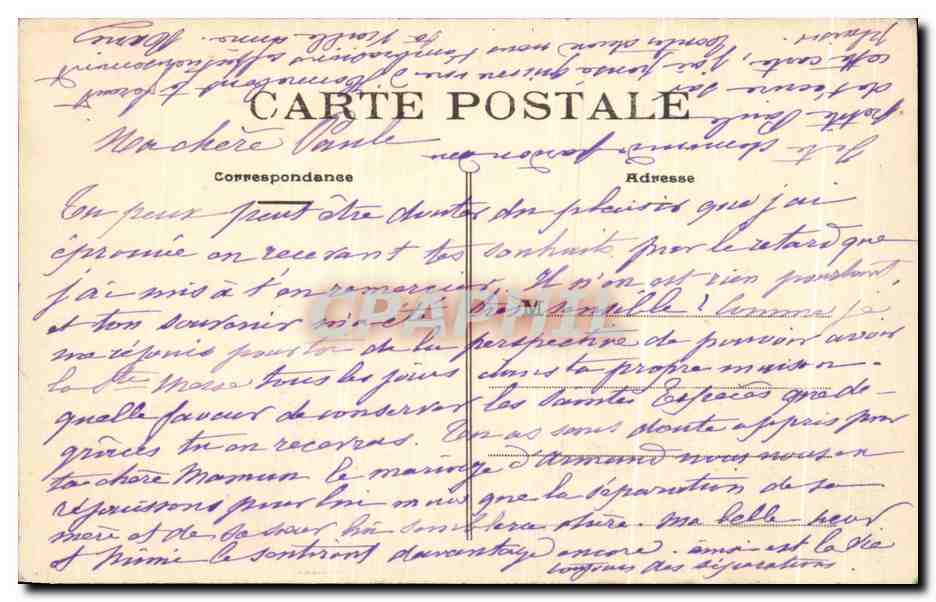 CARTE POSTALE
Ma chère Paule
Correspondance
Adresse
Tu peux peut être douter du plaisir que j'ai
éprouvé en recevant tes souhaits par le retard que
j'ai mis à t'en remercier. Il n'en est rien pourtant
et ton souvenir m'a été très sensible! Comme je
me réjouis pour toi de la perspective de pouvoir avoir
la Ste Messe tous les jours dans ta propre maison.
quelle faveur de conserver les saintes Espèces que de
grâces tu en recevras. Tu as sans doute appris par
ta chère Maman le mariage d'Armand nous nous en
réjouissons pour lui mais que la séparation de sa
mère et de sa sœur lui semblera chère. Ma belle sœur
et Mimi le sentiront davantage encore. ainsi est la vie
toujours des séparations.
petite Paule
de t'écrire sur
cette carte, j'ai pensé qu'une vue d'
CPAPHIL
M